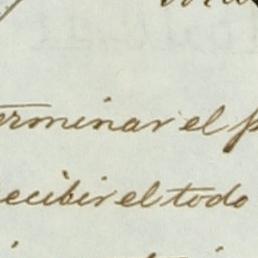 erminar el p
ecibir el todo